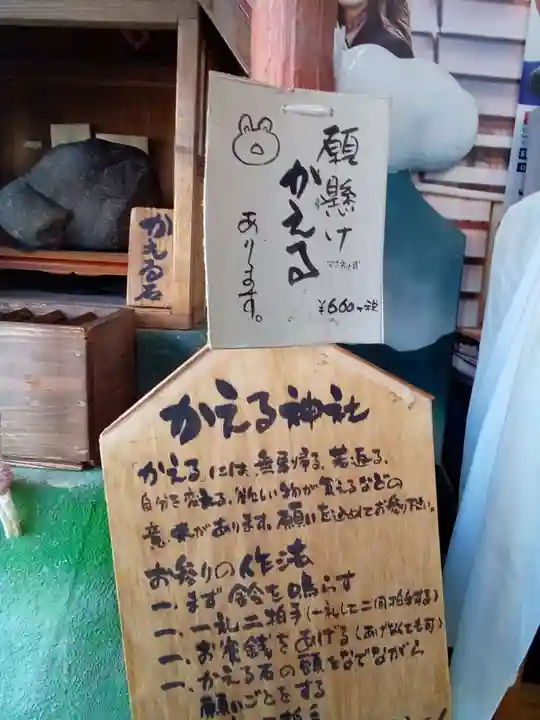 願懸け
かえる
マグネット式
¥660+税
あります。
かえる石
かえる神社
「かえる」には、無事帰る、若返る、
自分を変える、欲しい物が買えるなどの
意味があります。願いを込めてお参り下さい。
お参りの作法
一、まず鈴を鳴らす
一、一礼二拍手(一礼して二回拍手する)
一、お賽銭をあげる(あげなくても可)
一、かえる石の頭をなでながら
願いごとをする